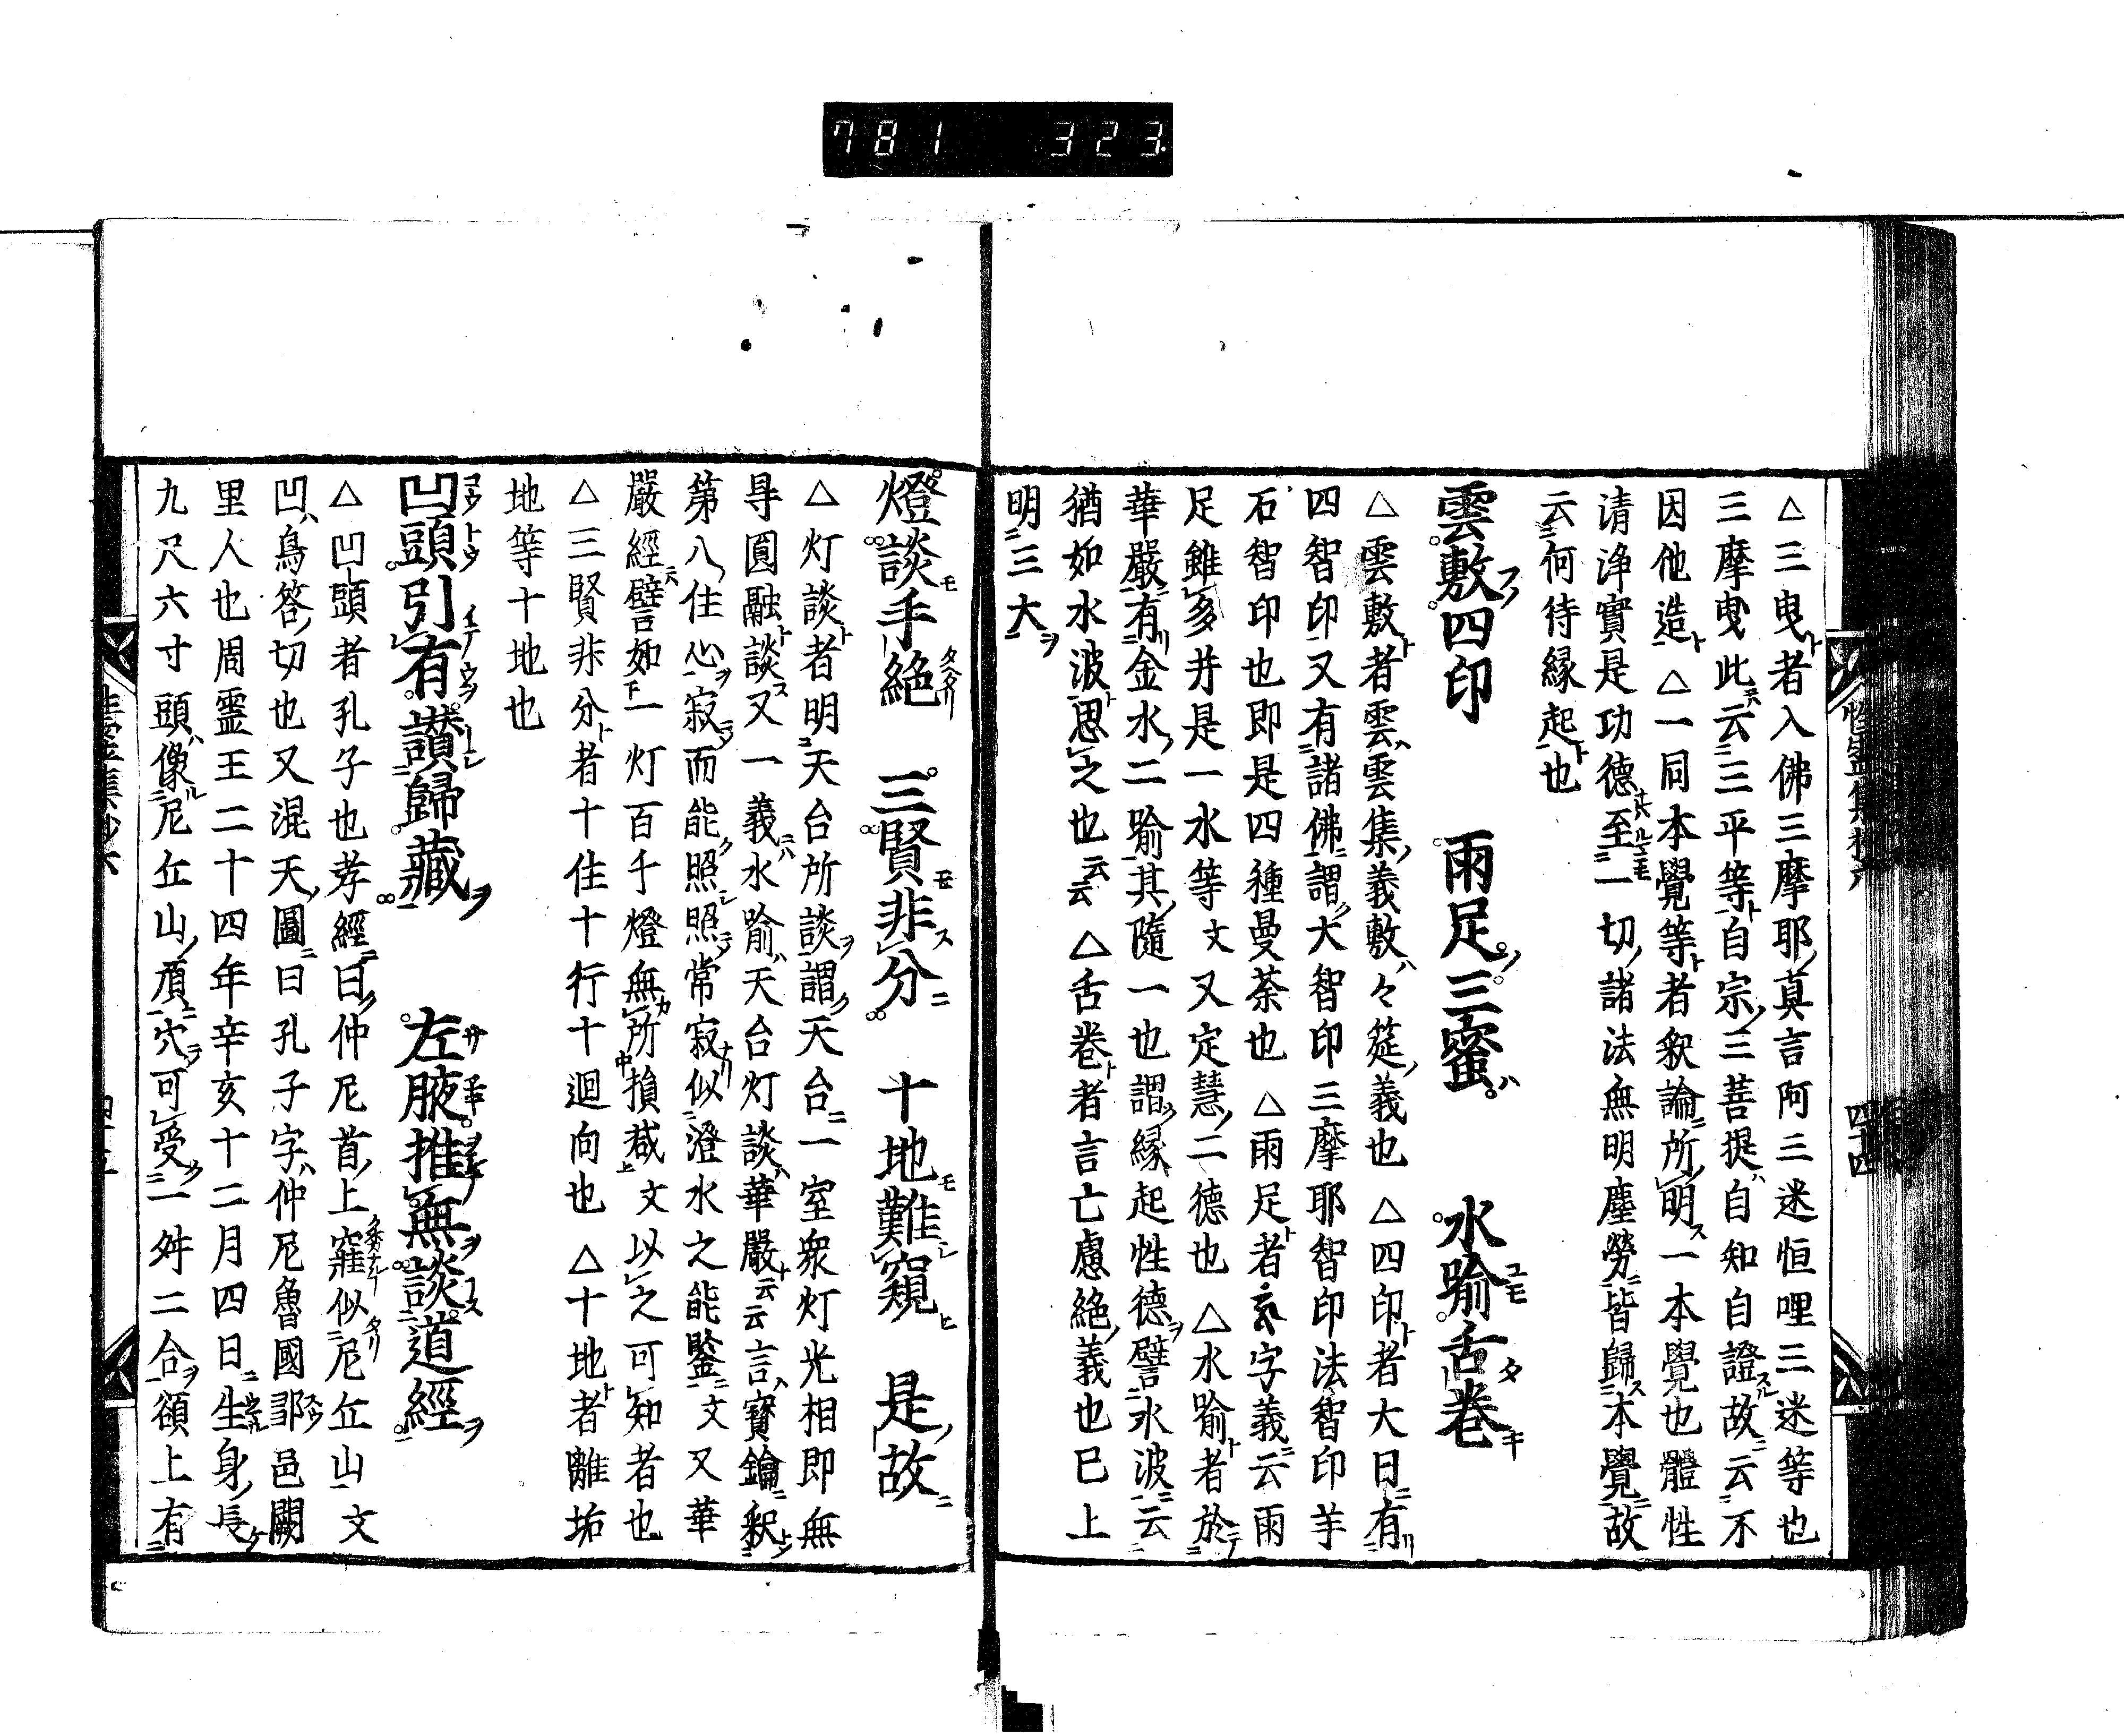 781 323
△三曳者入佛三摩耶眞言阿三迷怛哩三迷等也
三摩曳此云三平等自宗三菩提自知自證故云不
因他造△一同本覺等者釈論所明一本覺也體性
清浄實是功德至一切諸法無明塵勞皆歸本覺故
云何待縁起也
雲敷四印 雨足三蜜 水喩舌巻
△雲敷者雲雲集義敷々筵義也△四印者大日有
四智印又有諸佛謂大智印三摩耶智印法智印羊
石智印也即是四種曼荼也△雨足者字義云雨
足雖多并是一水等文又定慧二德也△水喩者於
華嚴有金水二喩其隨一也謂縁起性德譬水波云
猶如水波思之也云云△舌巻者言亡慮絶義也巳上
明三大
燈談手絶 三賢非分 十地難窺 是故
△灯談者明天台所談謂天台一室衆灯光相即無
㝵圓融談又一義水喩天台灯談華嚴云云言寶鑰釈
第八住心寂而能照照常寂似澄水之能鑒文又華
嚴經譬如一灯百千燈無所損減文以之可知者也
△三賢非分者十住十行十迴向也△十地者離垢
地等十地也
凹頭引有讃歸藏 左腋推無談道經
△凹頭者孔子也孝經曰仲尼首上窪似尼丘山文
凹烏答切也又混天圖曰孔子字仲尼魯國鄒邑闕
里人也周霊王二十四年辛亥十二月四日生身長
九尺六寸頭像尼丘山頂穴可受一舛二合額上有
四十四